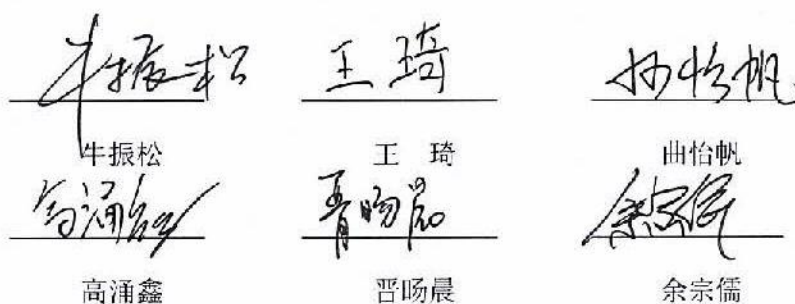 牛振松 王琦 怡帆
牛振松 王 琦 曲怡帆
高涌鑫 旸晨 余宗儒
高涌鑫 晋旸晨 余宗儒